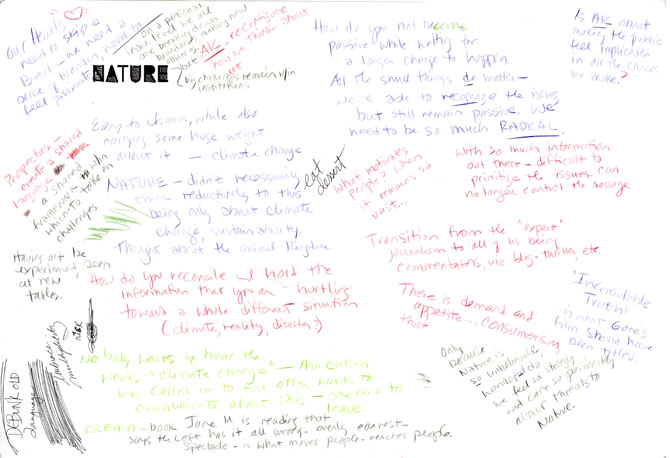 Our Hearts
need to skip a
Beat - we need a
sense of wonder - need to
feel passionate
on a personal
level we all
are branching from
NATURE
AK - reconfigure
how we think about
art
but changes remain w/in
institutions
How do you not become
passive while waiting for
a larger change to happen.
All the small things do matter -
we're able to recognize the issues
but still remain passive. We
need to be so much RADICAL.
Is AK about
making the public
feel implicated
in all the choices
we make?
Easy to dismiss, while also
carrying some huge weight
about it - climate change
NATURE - didn't necessarily
think reductively to this
being only about climate
change, sustainability.
Thought about the Animal Kingdom.
eat
dessert
What motivates
people? when
it remains so
vast...
With so much information
out there - difficult to
prioritize the issues. Can
no longer control the message
Prospectus -
create a shared
language
a shared
framework w/in
which to take on
challenges
Having art be
experienced, seen
at new
tables.
How do you reconcile and hold the
information that you're hurtling
toward a whole different situation
(climate, reality, disaster?)
Transition from the "expert"
journalism to all of us being
commentators, via blog - twitter, etc.
There is demand and
appetite... consumerism,
that
"Inconsolable
Truth"
is what Gore's
film should have
been titled.
Only
because
Nature is
so unbelievably
wonderful do
we feel so strongly
and care so passionately
about threats to
Nature.
DEBUNK OLD
language
embrace
multiplicity
risk
Nobody wants to hear the
words "climate change" -
was called in to find other words to
communicate about this - she had to
leave.
DREAM - book Jane M is reading that
says the Left has it all wrong - overly earnest -
Spectacle - is what moves people - reaches people.